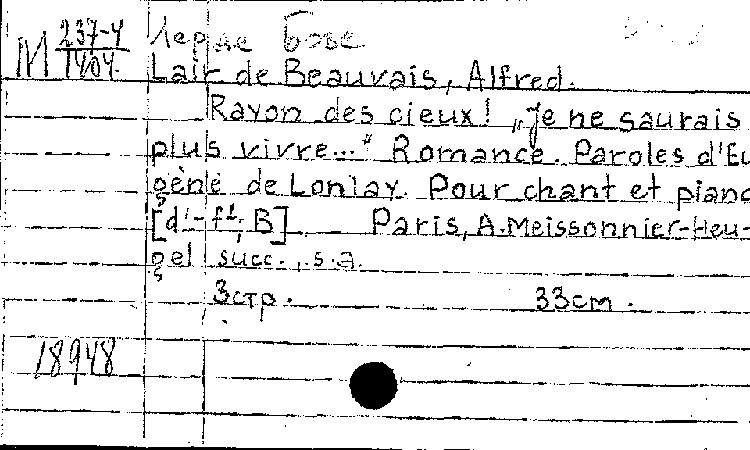 М 237-4/1404 Лерде Бове
Lair de Beauvais, Alfred.
Rayon des cieux! „Je ne saurais
plus vivre..." Romance. Paroles d'Eu
gènie de Lonlay. Pour chant et piano
[d'-f², B] Paris, A. Meissonnier-Heu-
gel succ., s.a.
3 стр. 33 cm.
18948